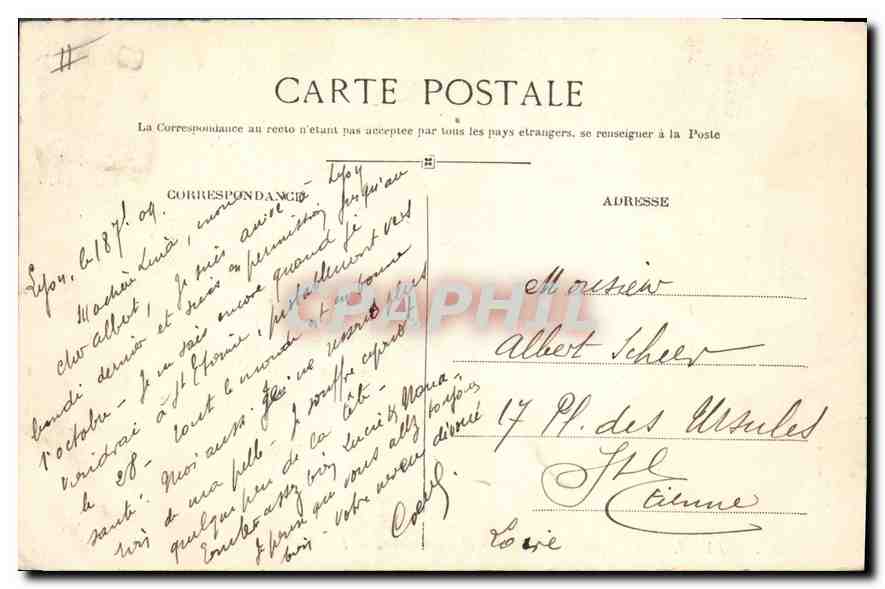 CARTE POSTALE
La Correspondance au recto n'étant pas acceptée par tous les pays étrangers, se renseigner à la Poste
CORRESPONDANCE
Lyon, le 09.
mon
cher Albert, Je suis arrivé à Lyon
lundi dernier et suis en permission jusqu'au
1er octobre – Je ne sais encore quand je
viendrai à St Etienne, probablement vers
le 28 – Tout le monde est en bonne
santé. Moi aussi. Je ne
de ma – Je souffre
quelque peu de la tête –
bien Lucie &
Je pense que vous allez toujours
bien – Votre neveu dévoué
ADRESSE
Monsieur
Albert Scheer
17 Pl. des Ursules
St
Etienne
Loire
CPAPHIL